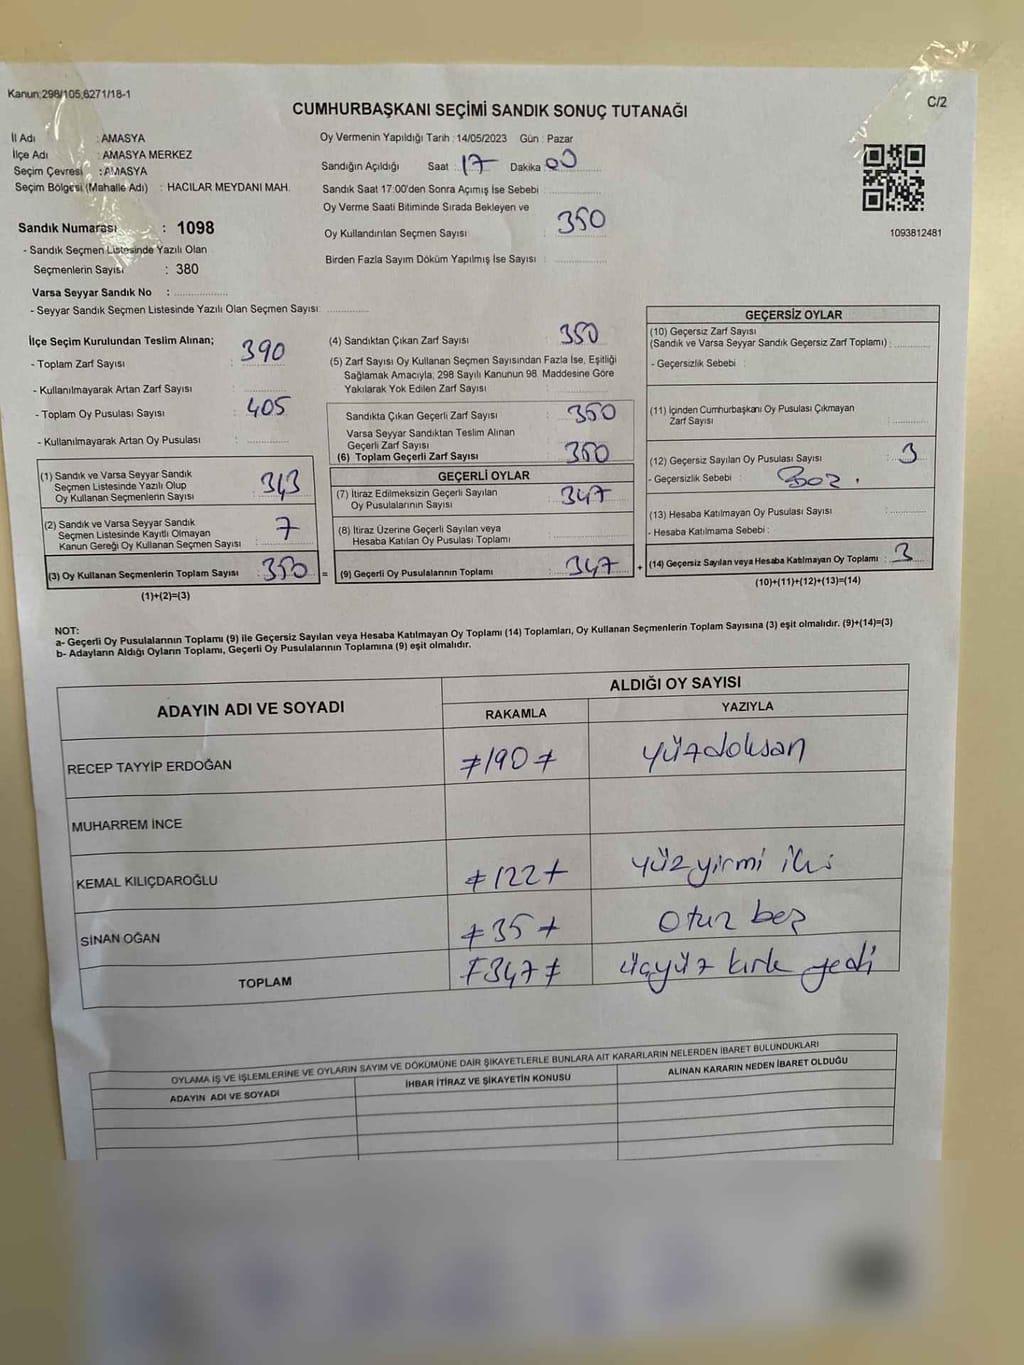 Kanun:298/105,6271/18-1
C/2
CUMHURBAŞKANI SEÇİMİ SANDIK SONUÇ TUTANAĞI
İl Adı : AMASYA
İlçe Adı : AMASYA MERKEZ
Seçim Çevresi : AMASYA
Seçim Bölgesi (Mahalle Adı) : HACILAR MEYDANI MAH.
Sandık Numarası : 1098
- Sandık Seçmen Listesinde Yazılı Olan
Seçmenlerin Sayısı : 380
Varsa Seyyar Sandık No :
- Seyyar Sandık Seçmen Listesinde Yazılı Olan Seçmen Sayısı :
Oy Vermenin Yapıldığı Tarih : 14/05/2023 Gün : Pazar
Sandığın Açıldığı Saat : 17 Dakika : 00
Sandık Saat 17:00'den Sonra Açımış İse Sebebi :
Oy Verme Saati Bitiminde Sırada Bekleyen ve
Oy Kullandırılan Seçmen Sayısı : 350
Birden Fazla Sayım Döküm Yapılmış İse Sayısı :
1093812481
İlçe Seçim Kurulundan Teslim Alınan;
- Toplam Zarf Sayısı : 390
- Kullanılmayarak Artan Zarf Sayısı :
- Toplam Oy Pusulası Sayısı : 405
- Kullanılmayarak Artan Oy Pusulası :
(1) Sandık ve Varsa Seyyar Sandık
Seçmen Listesinde Yazılı Olup
Oy Kullanan Seçmenlerin Sayısı : 343
(2) Sandık ve Varsa Seyyar Sandık
Seçmen Listesinde Kayıtlı Olmayan
Kanun Gereği Oy Kullanan Seçmen Sayısı : 7
(3) Oy Kullanan Seçmenlerin Toplam Sayısı : 350 =
(1)+(2)=(3)
(4) Sandıktan Çıkan Zarf Sayısı : 350
(5) Zarf Sayısı Oy Kullanan Seçmen Sayısından Fazla İse, Eşitliği
Sağlamak Amacıyla, 298 Sayılı Kanunun 98. Maddesine Göre
Yakılarak Yok Edilen Zarf Sayısı :
Sandıkta Çıkan Geçerli Zarf Sayısı : 350
Varsa Seyyar Sandıktan Teslim Alınan
Geçerli Zarf Sayısı :
(6) Toplam Geçerli Zarf Sayısı : 350
GEÇERLİ OYLAR
(7) İtiraz Edilmeksizin Geçerli Sayılan
Oy Pusulalarının Sayısı : 347
(8) İtiraz Üzerine Geçerli Sayılan veya
Hesaba Katılan Oy Pusulası Toplamı :
(9) Geçerli Oy Pusulalarının Toplamı : 347 +
GEÇERSİZ OYLAR
(10) Geçersiz Zarf Sayısı
(Sandık ve Varsa Seyyar Sandık Geçersiz Zarf Toplamı) :
- Geçersizlik Sebebi :
(11) İçinden Cumhurbaşkanı Oy Pusulası Çıkmayan
Zarf Sayısı :
(12) Geçersiz Sayılan Oy Pusulası Sayısı : 3
- Geçersizlik Sebebi :
(13) Hesaba Katılmayan Oy Pusulası Sayısı :
- Hesaba Katılmama Sebebi :
(14) Geçersiz Sayılan veya Hesaba Katılmayan Oy Toplamı : 3
(10)+(11)+(12)+(13)=(14)
NOT:
a- Geçerli Oy Pusulalarının Toplamı (9) ile Geçersiz Sayılan veya Hesaba Katılmayan Oy Toplamı (14) Toplamları, Oy Kullanan Seçmenlerin Toplam Sayısına (3) eşit olmalıdır. (9)+(14)=(3)
b- Adayların Aldığı Oyların Toplamı, Geçerli Oy Pusulalarının Toplamına (9) eşit olmalıdır.
ADAYIN ADI VE SOYADI
ALDIĞI OY SAYISI
RAKAMLA YAZIYLA
RECEP TAYYİP ERDOĞAN ≠190≠ yüzdoksan
MUHARREM İNCE
KEMAL KILIÇDAROĞLU ≠122+ yüzyirmi iki
SİNAN OĞAN ≠35+ otuz beş
TOPLAM ≠347≠ üçyüz kırk yedi
OYLAMA İŞ VE İŞLEMLERİNE VE OYLARIN SAYIM VE DÖKÜMÜNE DAİR ŞİKAYETLERLE BUNLARA AİT KARARLARIN NELERDEN İBARET BULUNDUKLARI
ADAYIN ADI VE SOYADI İHBAR İTİRAZ VE ŞİKAYETİN KONUSU ALINAN KARARIN NEDEN İBARET OLDUĞU